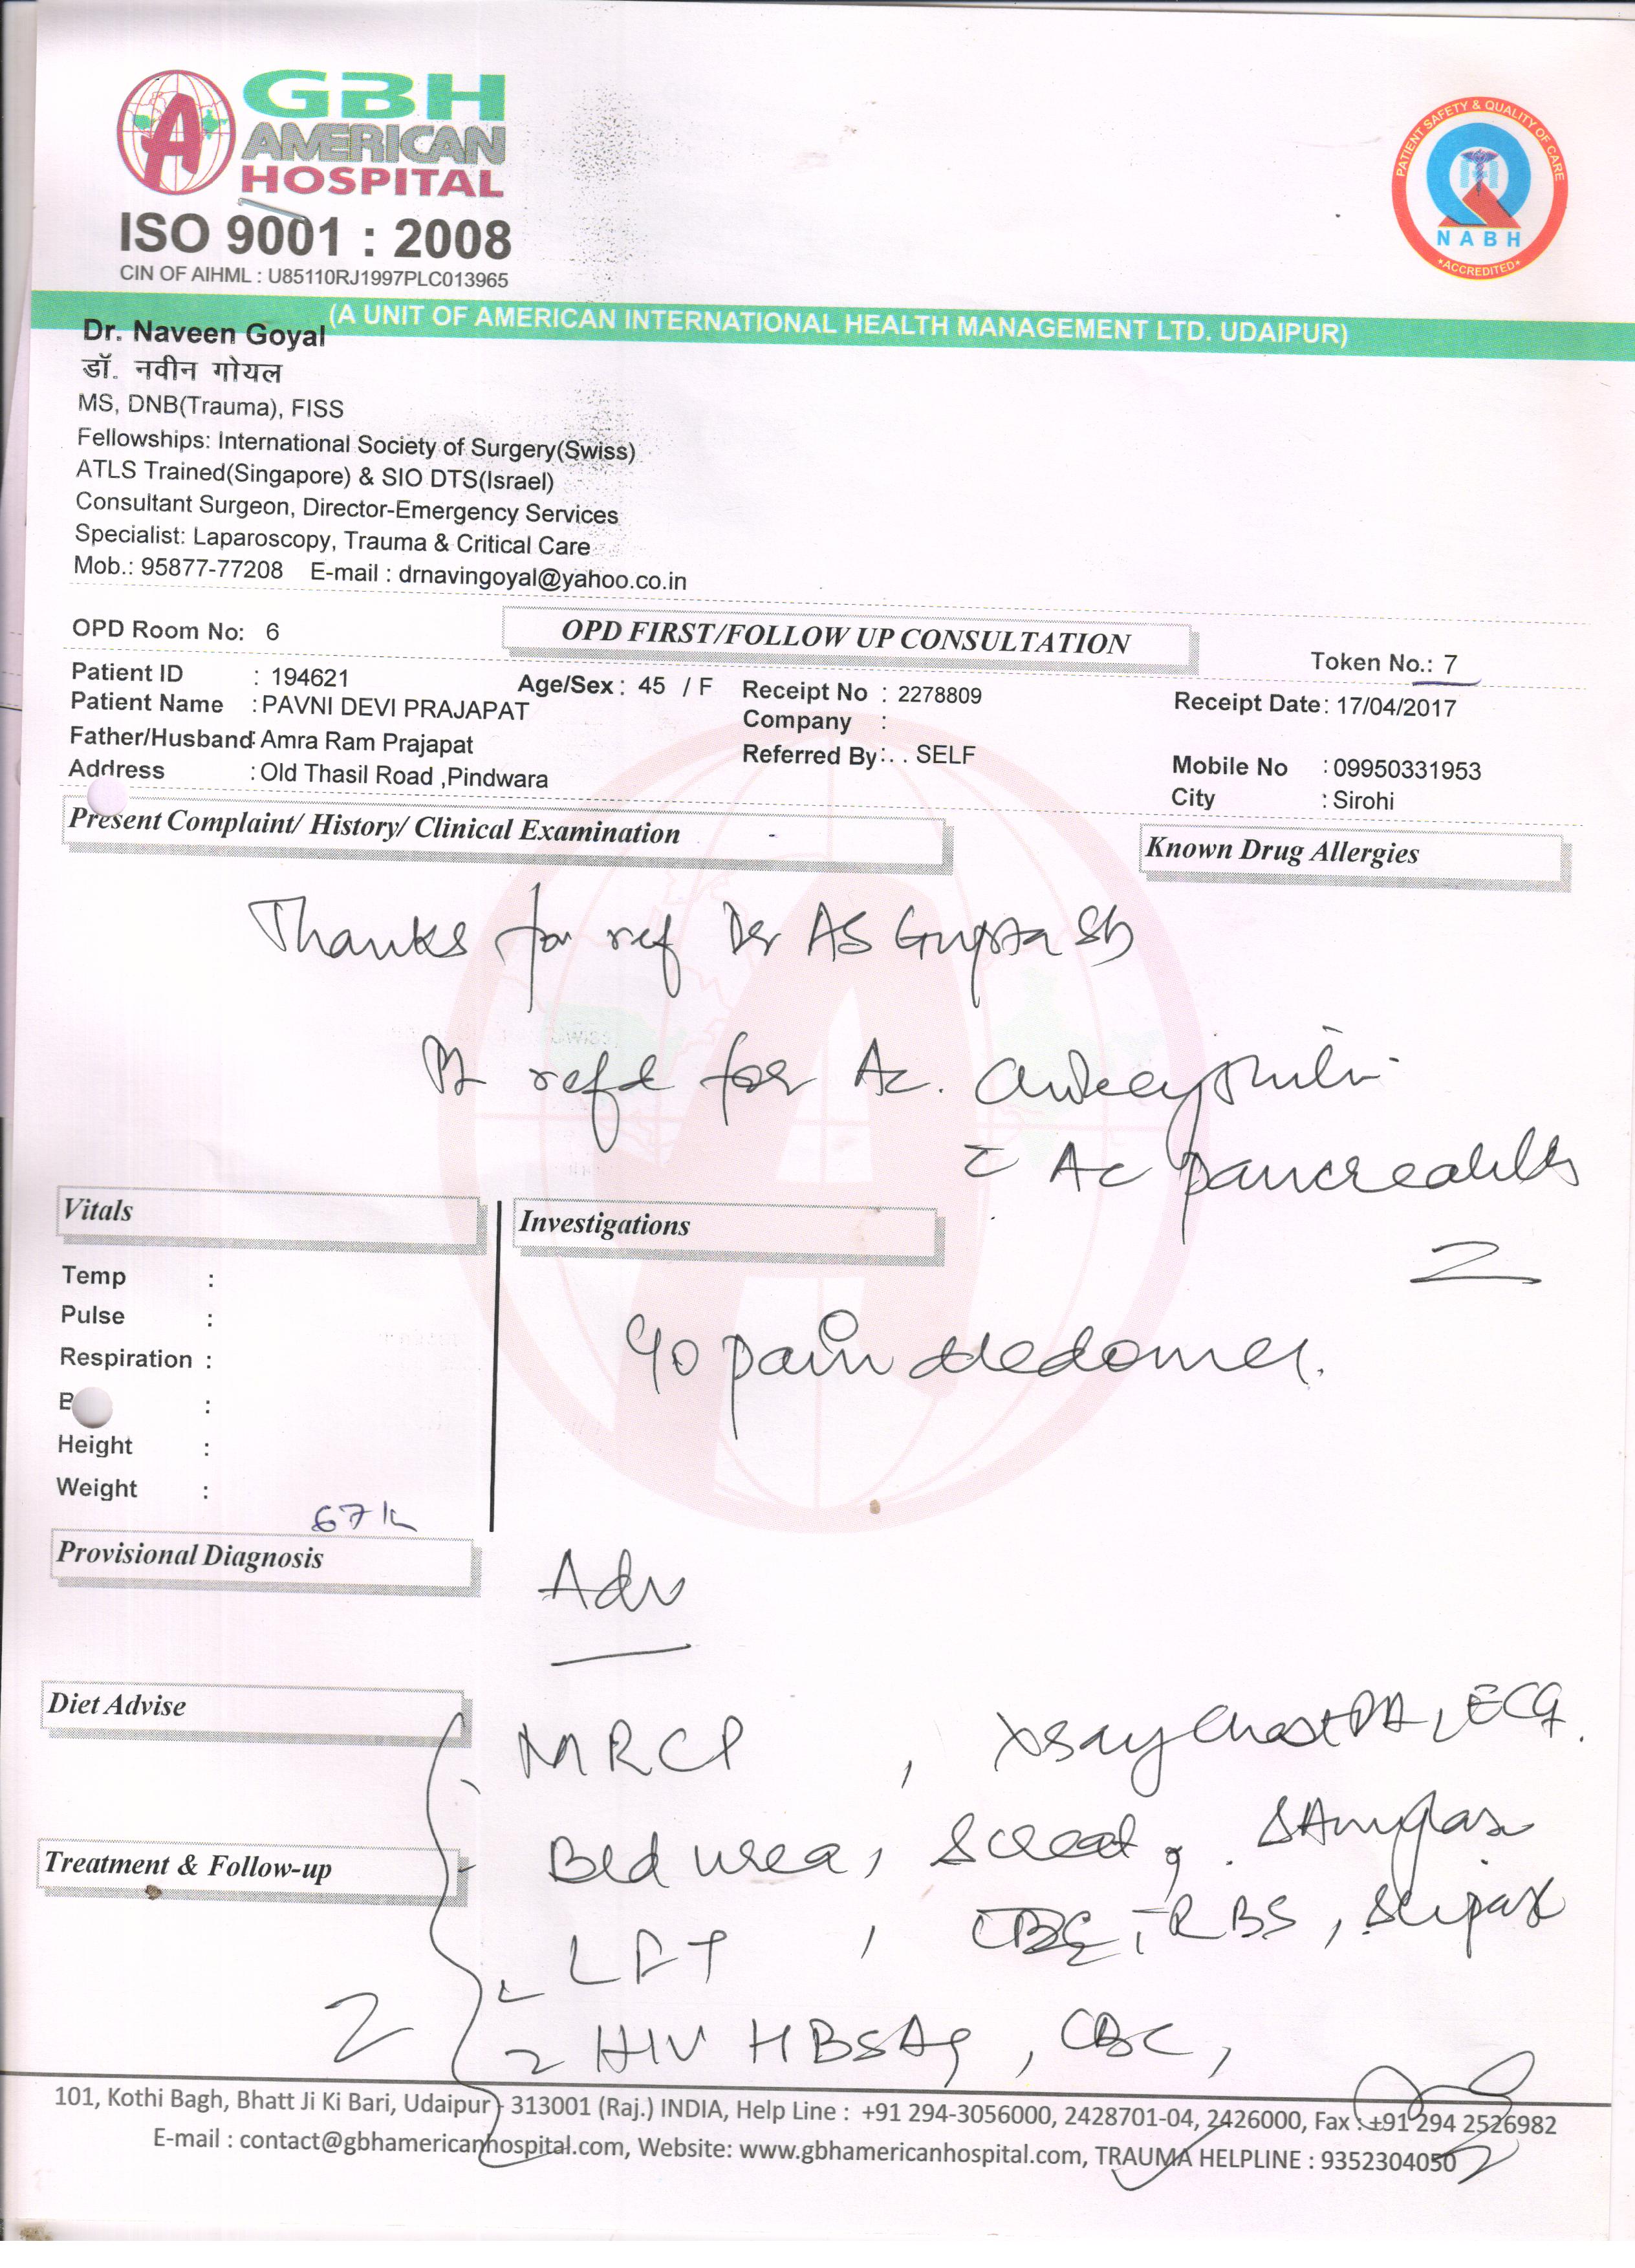 GBH
AMERICAN
HOSPITAL
ISO 9001 : 2008
CIN OF AIHML : U85110RJ1997PLC013965
PATIENT SAFETY & QUALITY OF CARE
NABH
ACCREDITED
(A UNIT OF AMERICAN INTERNATIONAL HEALTH MANAGEMENT LTD. UDAIPUR)
Dr. Naveen Goyal
डॉ. नवीन गोयल
MS, DNB(Trauma), FISS
Fellowships: International Society of Surgery(Swiss)
ATLS Trained(Singapore) & SIO DTS(Israel)
Consultant Surgeon, Director-Emergency Services
Specialist: Laparoscopy, Trauma & Critical Care
Mob.: 95877-77208 E-mail : drnavingoyal@yahoo.co.in
OPD Room No: 6
OPD FIRST/FOLLOW UP CONSULTATION
Token No.: 7
Patient ID : 194621 Age/Sex : 45 / F Receipt No : 2278809 Receipt Date: 17/04/2017
Patient Name : PAVNI DEVI PRAJAPAT Company :
Father/Husband: Amra Ram Prajapat Referred By:. . SELF Mobile No : 09950331953
Address : Old Thasil Road ,Pindwara City : Sirohi
Present Complaint/ History/ Clinical Examination
Known Drug Allergies
Thanks for ref Dr AS Gupta Sb
Pt refd for Ac.
Ac pancreatitis
Vitals
Investigations
Temp :
Pulse :
Respiration :
B :
Height :
Weight :
67 k
c/o pain
Provisional Diagnosis
Adv
Diet Advise
MRCP , Xray Chest PA, ECG.
Treatment & Follow-up
Bld urea, S creat, S Amylase
LFT , RBS, S lipase
HIV HBsAg , CBC,
101, Kothi Bagh, Bhatt Ji Ki Bari, Udaipur - 313001 (Raj.) INDIA, Help Line : +91 294-3056000, 2428701-04, 2426000, Fax : +91 294 2526982
E-mail : contact@gbhamericanhospital.com, Website: www.gbhamericanhospital.com, TRAUMA HELPLINE : 9352304050